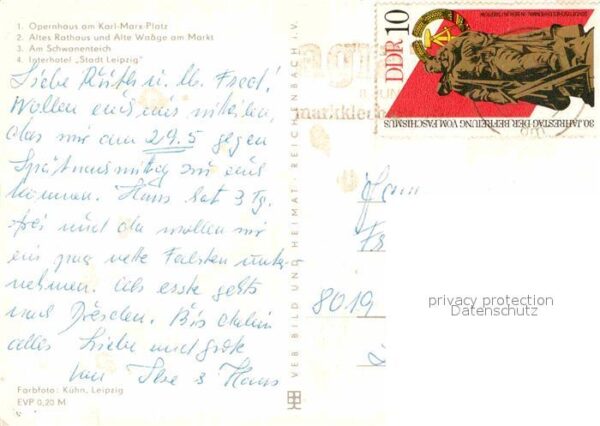 1. Opernhaus am Karl-Marx-Platz
2. Altes Rathaus und Alte Waage am Markt
3. Am Schwanenteich
4. Interhotel „Stadt Leipzig"
Liebe u. lb. Fred!
Wollen euch nur mitteilen,
das wir am 29.5 gegen
Spätnachmittag zu euch
kommen. Hans hat 3 Tg.
frei und da wollen wir
ein paar nette Fahrten unter-
nehmen. Als erste gehts
nach Dresden. Bis dahin
alles Liebe und Grüße
von Ilse & Hans
Farbfoto: Kühn, Leipzig
EVP 0,20 M
VEB BILD UND HEIMAT REICHENBACH i.V.
agra
markklee
DDR 10
30. JAHRESTAG DER BEFREIUNG VOM FASCHISMUS
8019
privacy protection
Datenschutz